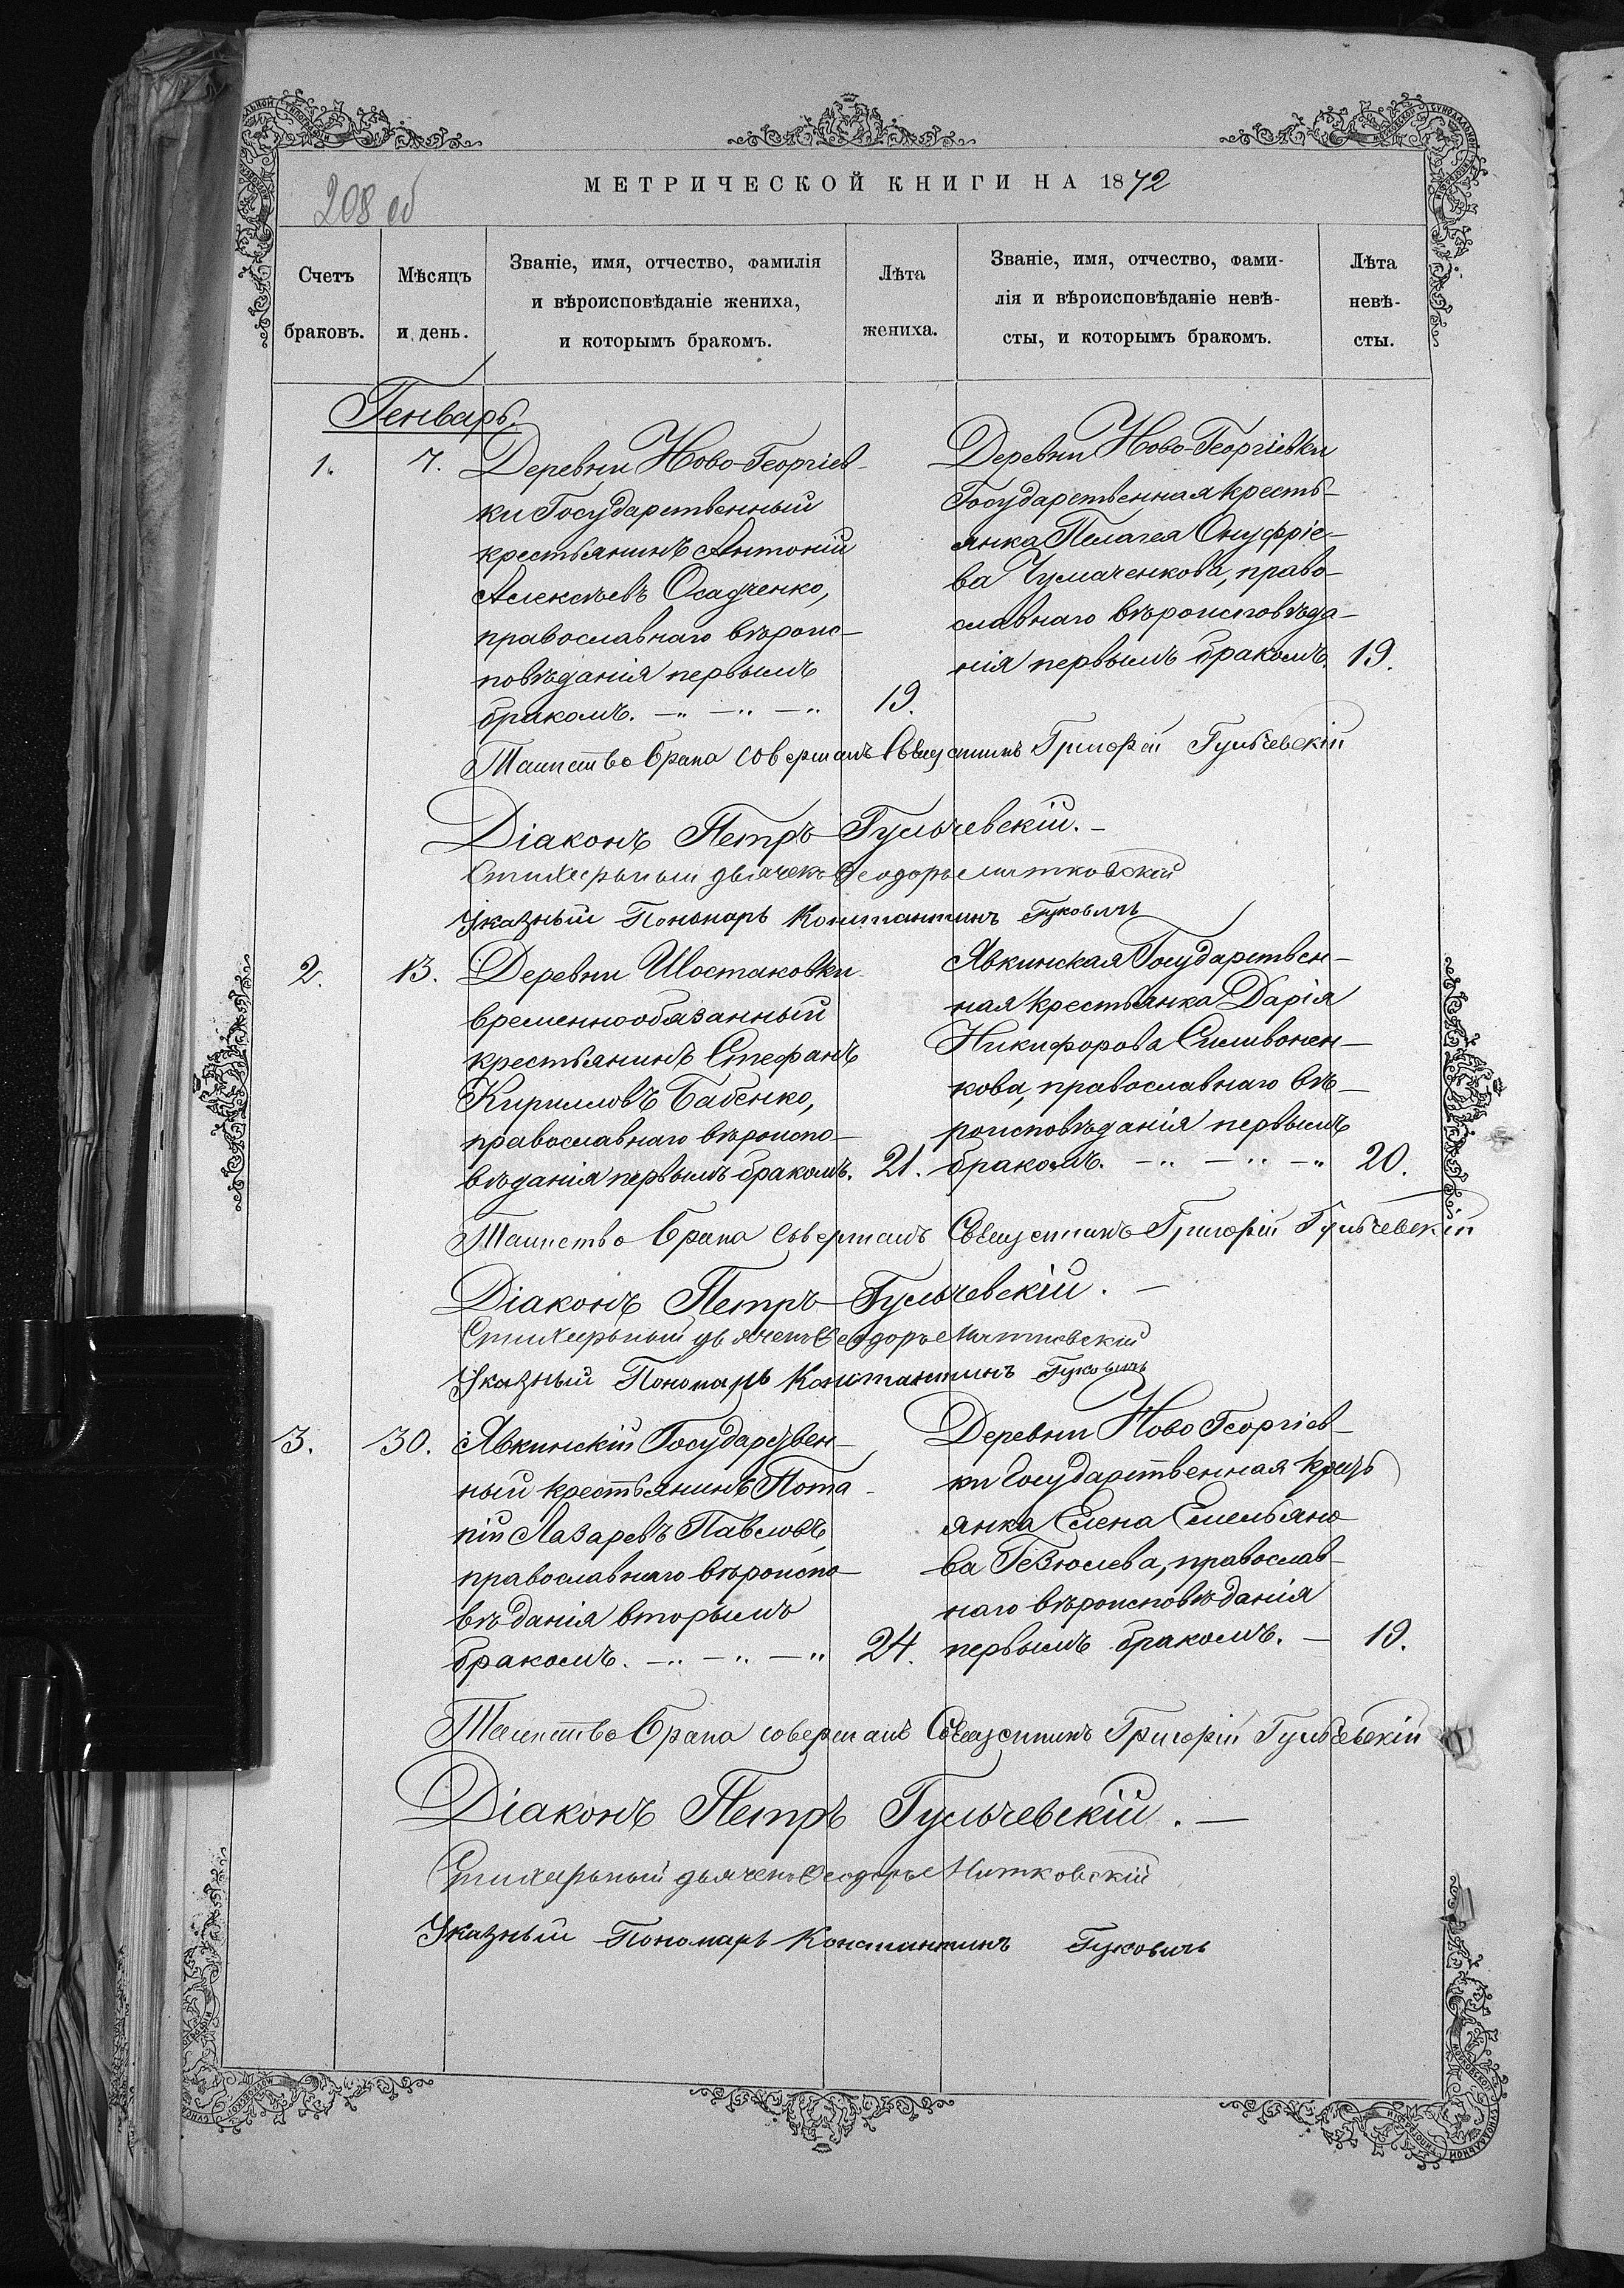 МЕТРИЧЕСКОЙ КНИГИ НА 1872
208 об
Счетъ браковъ.
Мѣсяцъ и день.
Званіе, имя, отчество, фамилія
и вѣроисповѣданіе жениха,
и которымъ бракомъ.
Лѣта жениха.
Званіе, имя, отчество, фами-
лія и вѣроисповѣданіе невѣ-
сты, и которымъ бракомъ.
Лѣта невѣ-
сты.
Генварь.
1. 7.
Деревни Ново-Георгіев-
ки Государственный
крестьянинъ Антоній
Алексѣевъ Осадченко,
православнаго вѣроис-
повѣданія первымъ
бракомъ. 19.
Деревни Ново-Георгіевки
Государственная кресть-
янка Пелагея Онуфріе-
ва Чумаченкова, право-
славнаго вѣроисповѣда-
нія первымъ бракомъ. 19.
Таинство брака совершалъ Священникъ Григорій Гульчевскій
Діаконъ Петръ Гульчевскій.
Стихарный дьячекъ Ѳеодоръ Митковскій
Указный Пономарь Константинъ Гуковичъ
2. 13.
Деревни Шостаковки
временнообязанный
крестьянинъ Стефанъ
Кирилловъ Бабенко,
православнаго вѣроиспо-
вѣданія первымъ бракомъ. 21.
Явкинская Государствен-
ная крестьянка Дарія
Никифорова Силивонен-
кова, православнаго вѣ-
роисповѣданія первымъ
бракомъ. 20.
Таинство брака совершалъ Священникъ Григорій Гульчевскій
Діаконъ Петръ Гульчевскій.
Стихарный дьячекъ Ѳеодоръ Митковскій
Указный Пономарь Константинъ Гуковичъ
3. 30.
Явкинскій Государствен-
ный крестьянинъ Пота-
пій Лазаревъ Павловъ,
православнаго вѣроиспо-
вѣданія вторымъ
бракомъ. 24.
Деревни Ново Георгіев-
ки Государственная кресть
янка Елена Емельяно-
ва православ-
наго вѣроисповѣданія
первымъ бракомъ. 19.
Таинство брака совершалъ Священникъ Григорій Гульчевскій
Діаконъ Петръ Гульчевскій.
Стихарный дьячекъ Ѳеодоръ Митковскій
Указный Пономарь Константинъ Гуковичъ